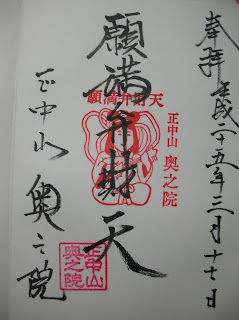 奉拝
平成二十五年三月十七日
願満弁財天
天財弁満願
正中山
奥之院
正中山 奥之院
正中山
奥之院